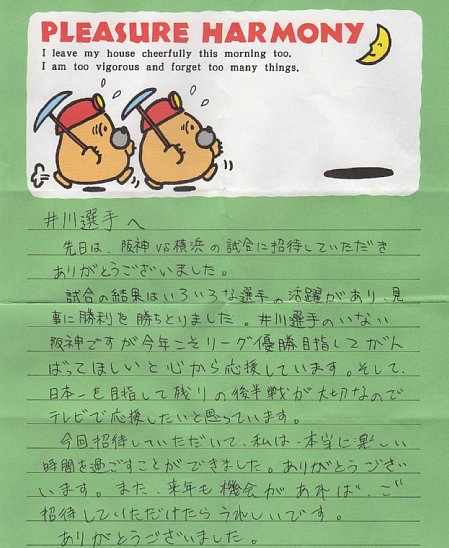 PLEASURE HARMONY
I leave my house cheerfully this morning too.
I am too vigorous and forget too many things.
井川選手へ
先日は、阪神VS横浜の試合に招待していただき
ありがとうございました。
試合の結果はいろいろな選手の活躍があり、見
事に勝利を勝ちとりました。井川選手のいない
阪神ですが今年こそリーグ優勝目指してがん
ばってほしいと心から応援しています。そして、
日本一を目指して残りの後半戦が大切なので
テレビで応援したいと思っています。
今回招待していただいて、私は、本当に楽しい
時間を過ごすことができました。ありがとうござい
います。また、来年も機会があれば、ご
招待していただけたらうれしいです。
ありがとうございました。